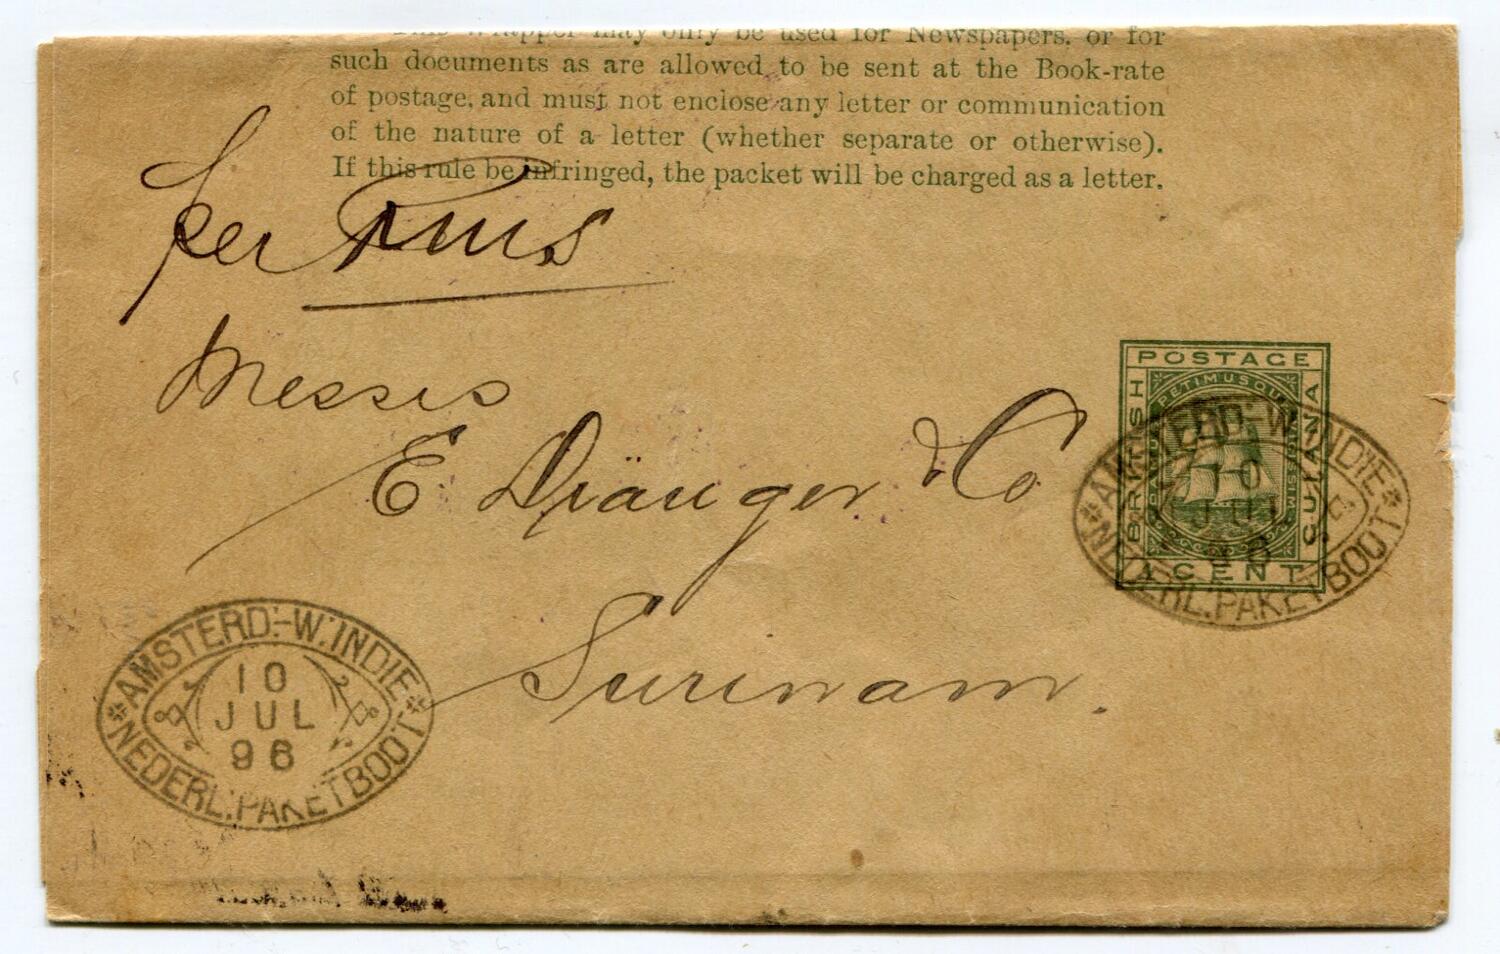 This Wrapper may only be used for Newspapers, or for
such documents as are allowed to be sent at the Book-rate
of postage, and must not enclose any letter or communication
of the nature of a letter (whether separate or otherwise).
If this rule be infringed, the packet will be charged as a letter.
per RMS
Messrs
E Dränger & Co
Surinam.
POSTAGE
BRITISH
GUIANA
PETIMUSQUE
1 CENT
AMSTERD:-W:INDIE
10
JUL
96
NEDERL:PAKETBOOT
AMSTERD:-W:INDIE
10
JUL
96
NEDERL:PAKETBOOT